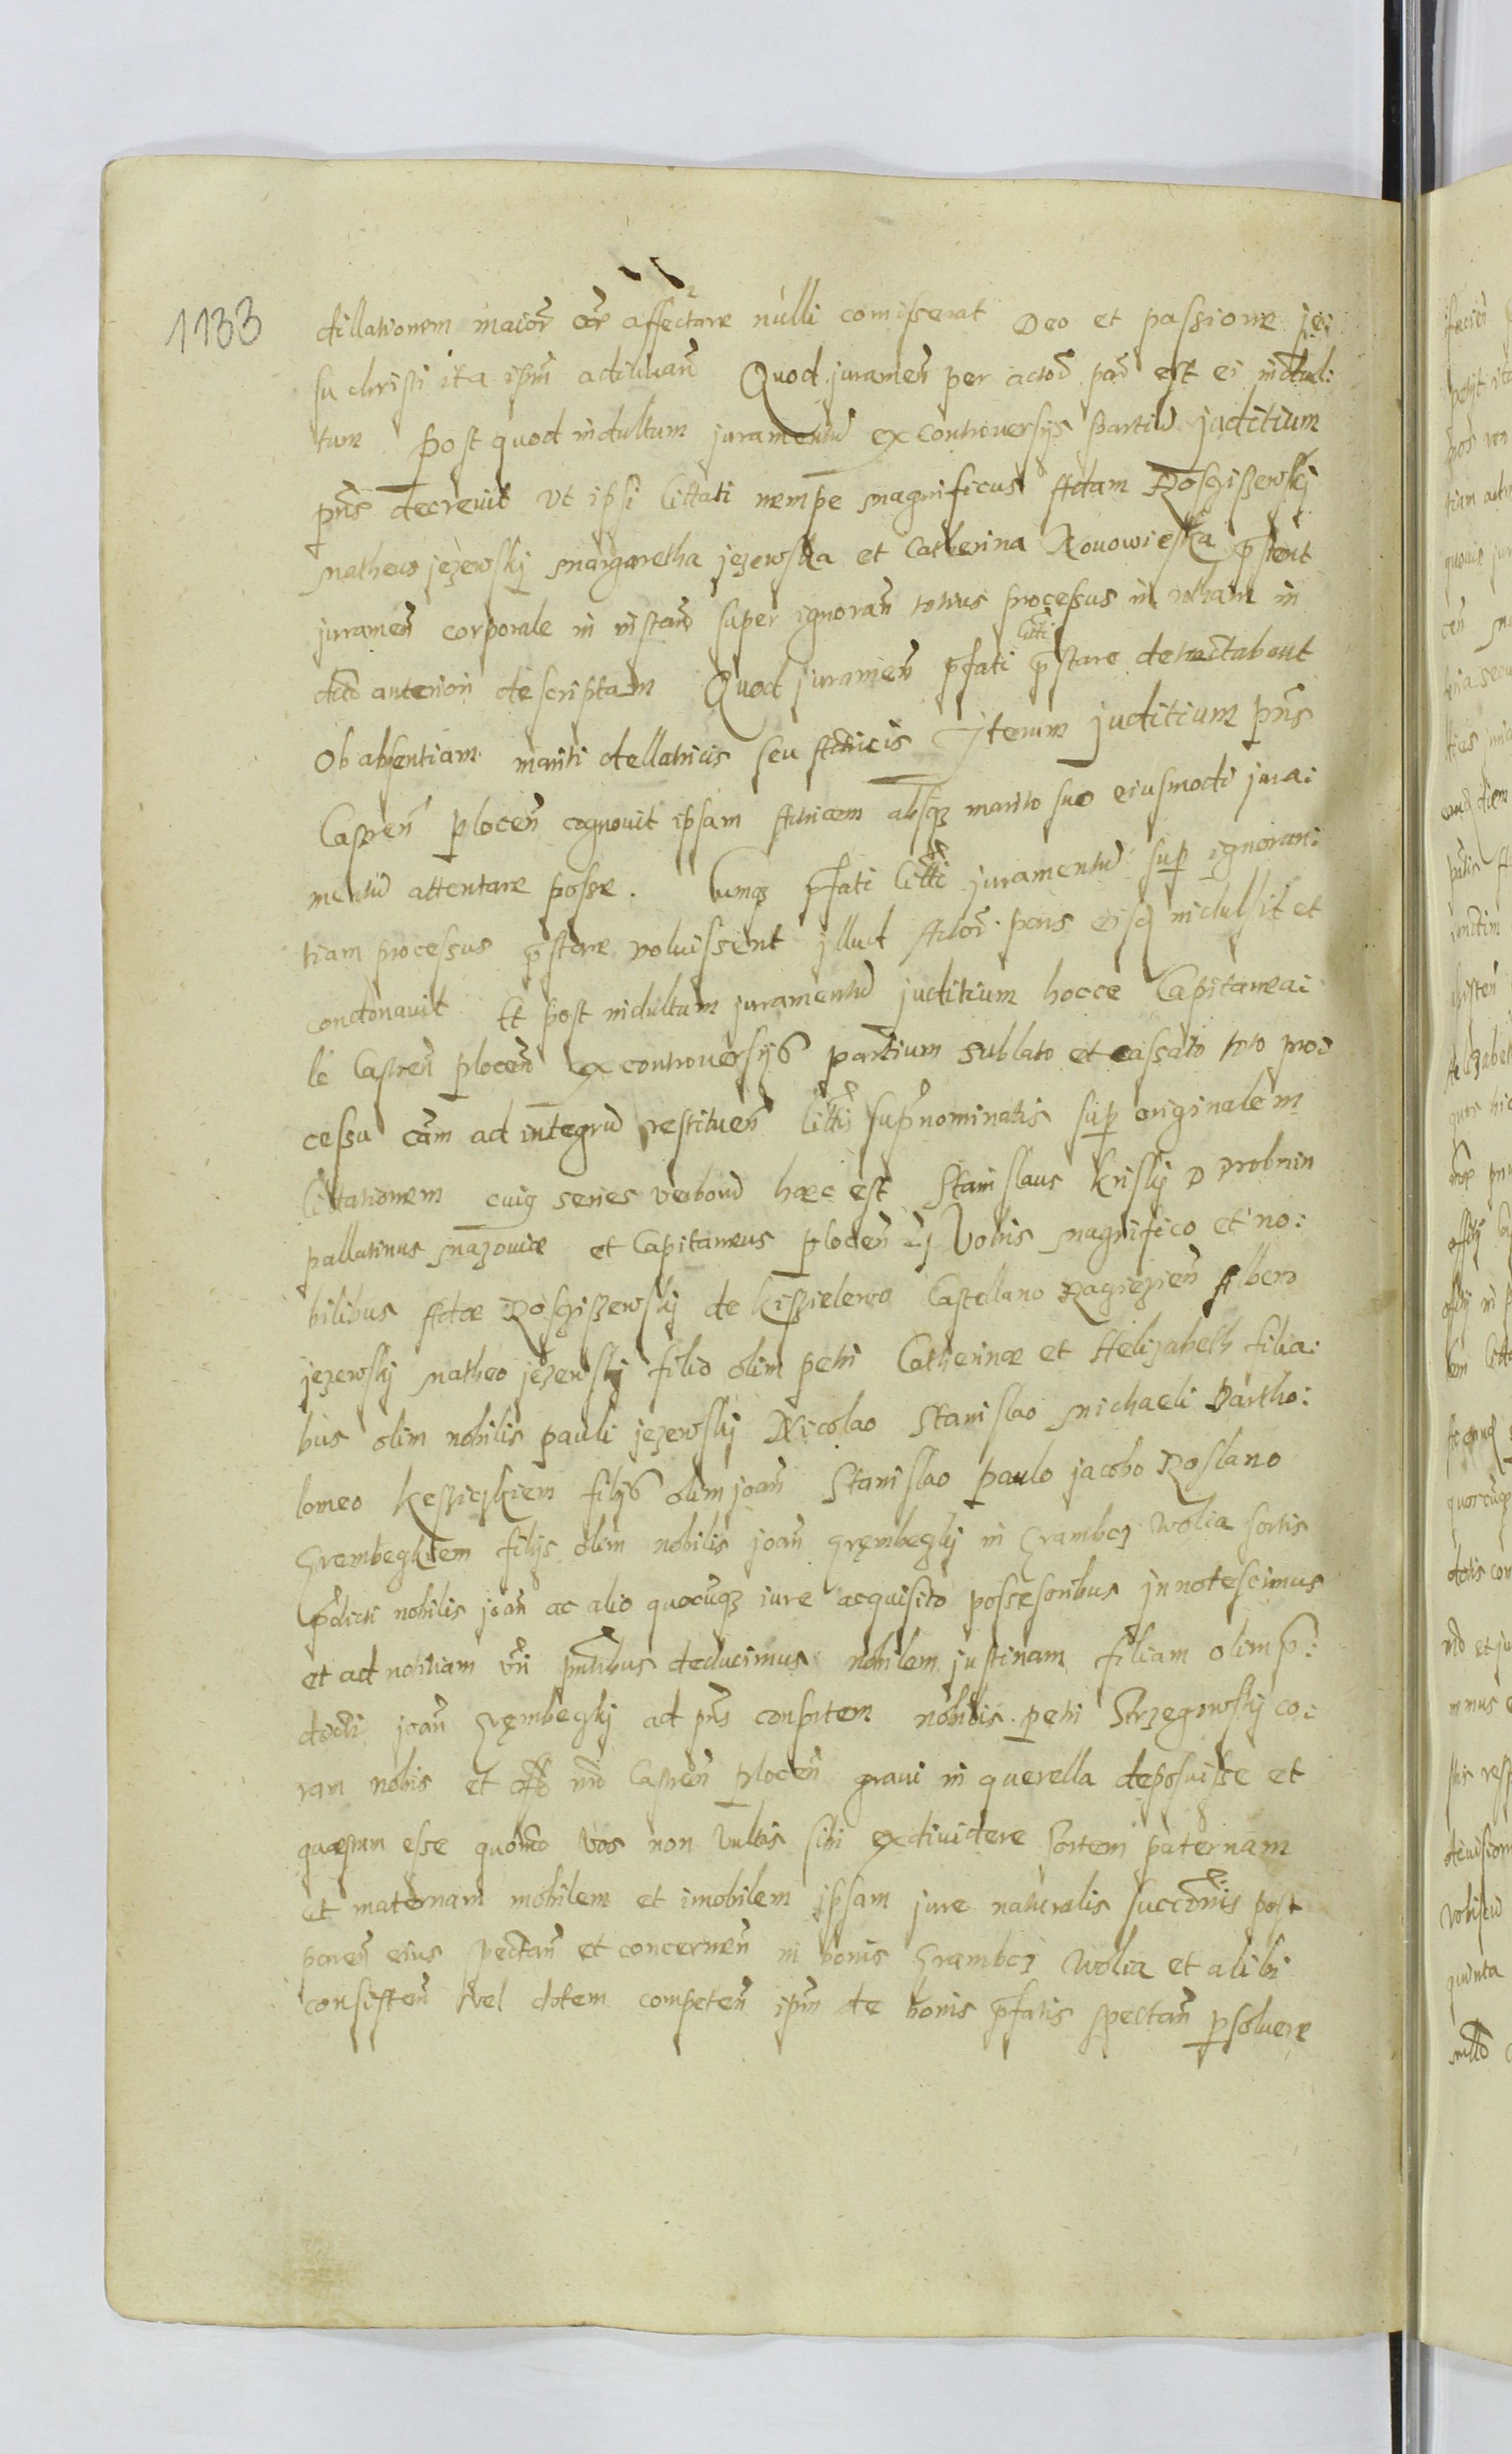 1133
dillationem maior affectare nulli comisserat Deo et passione je:
su christi ita ipm adiuuan̄ Quod juramen̄ per actor̄ par̄ est ei indul:
tum post quod indultum juramentū ex controuersijs partiū juditium
pn̄s decreuit vt ipsi littati nempe magnificus Adam Rosciszewskj
Matheus jezewskj Margaretha jezewska et Catherina Nouowieska p̄stent
juramen̄ corporale in instan̄ super ignoran̄ totius processus in rotham in
dcto anteriori descriptam Quod juramen̄ p̄fati litti p̄stare detractabant
Ob absentiam mariti dellatricis seu Actricis Iterum juditium pn̄s
Castren̄ plocen̄ cognouit ipsam Actricem absqz marito suo eiusmodi jura:
mentū attentare posse. Cumqz p̄fati litti juramentū sup ignoran:
tiam processus p̄stare voluissent illud Actor̄ pars eisd indulsit et
condonauit Et post indultum juramentū juditium hocce Capitanea:
le Castren̄ plocen̄ ex controuersijs partium sublato et cassato toto pro
cessu cām ad integrū restituen̄ littis supnominatis sup originalem
littationem cuig series verborū hæc est Stanislaus Kriskj D Drobnin
pallatinus Mazouiæ et Capitaneus plocen̄ Vobis Magnifico et no:
bilibus Adæ Rosciszewskj de Kisielewo Castellano Raciezen̄ Alberto
jezewskj Matheo jezewskj filio olim petri Catherinæ et Helizabeth filia:
bus olim nobilis pauli jezewskj Nicolao Stanislao Michaeli Bartho:
lomeo filijs olim joan̄ Stanislao paulo jacobo Roslano
filijs olim nobilis joan̄ in Grambcz Wolia sortis
p̄dicti nobilis joan̄ ac alio quocuqz iure acquisito possesoribus innotescimus
et ad notitiam vr̄i pn̄tibus deducimus nobilem justinam filiam olim p̄:
dicti joan̄ ad pn̄s consortem nobilis petri Strzegowskj co:
ram nobis et offo nr̄o Castren̄ plocen̄ graui in querella deposuisse et
quæstam esse quomō vos non vultis sibi exdiuidere sortem paternam
et maternam mobilem et imobilem ipsam jure naturalis succonis post
paren̄ eius spectan̄ et concernen̄ in bonis Grambcz Wolia et alibi
consisten̄ vel dotem competen̄ ipm de bonis p̄fatis spectan̄ psoluere